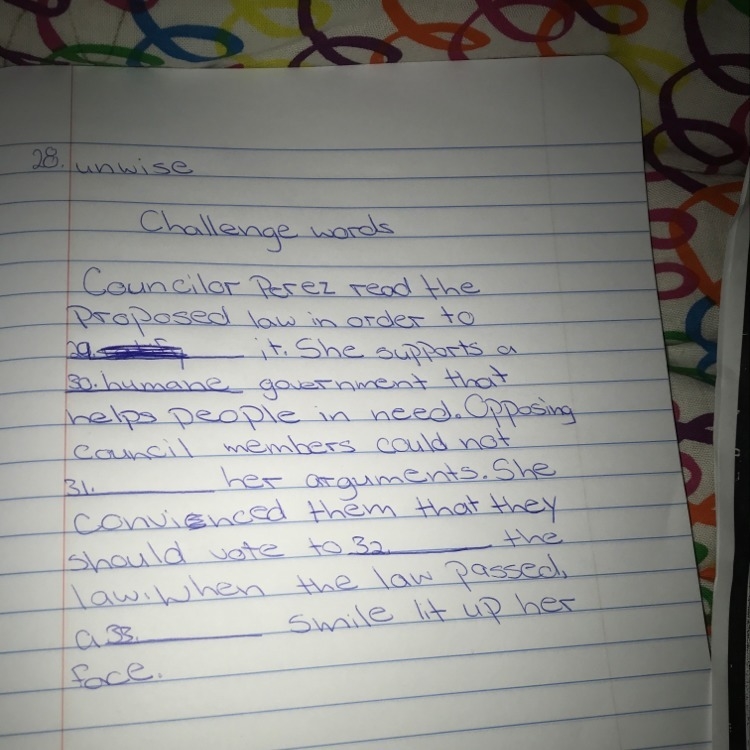 28. unwise
Challenge words
Councilor Perez read the
proposed law in order to
29. it. She supports a
30. humane government that
helps people in need. Opposing
council members could not
31. her arguments. She
convienced them that they
should vote to 32. the
law. When the law passed,
a 33. smile lit up her
face.